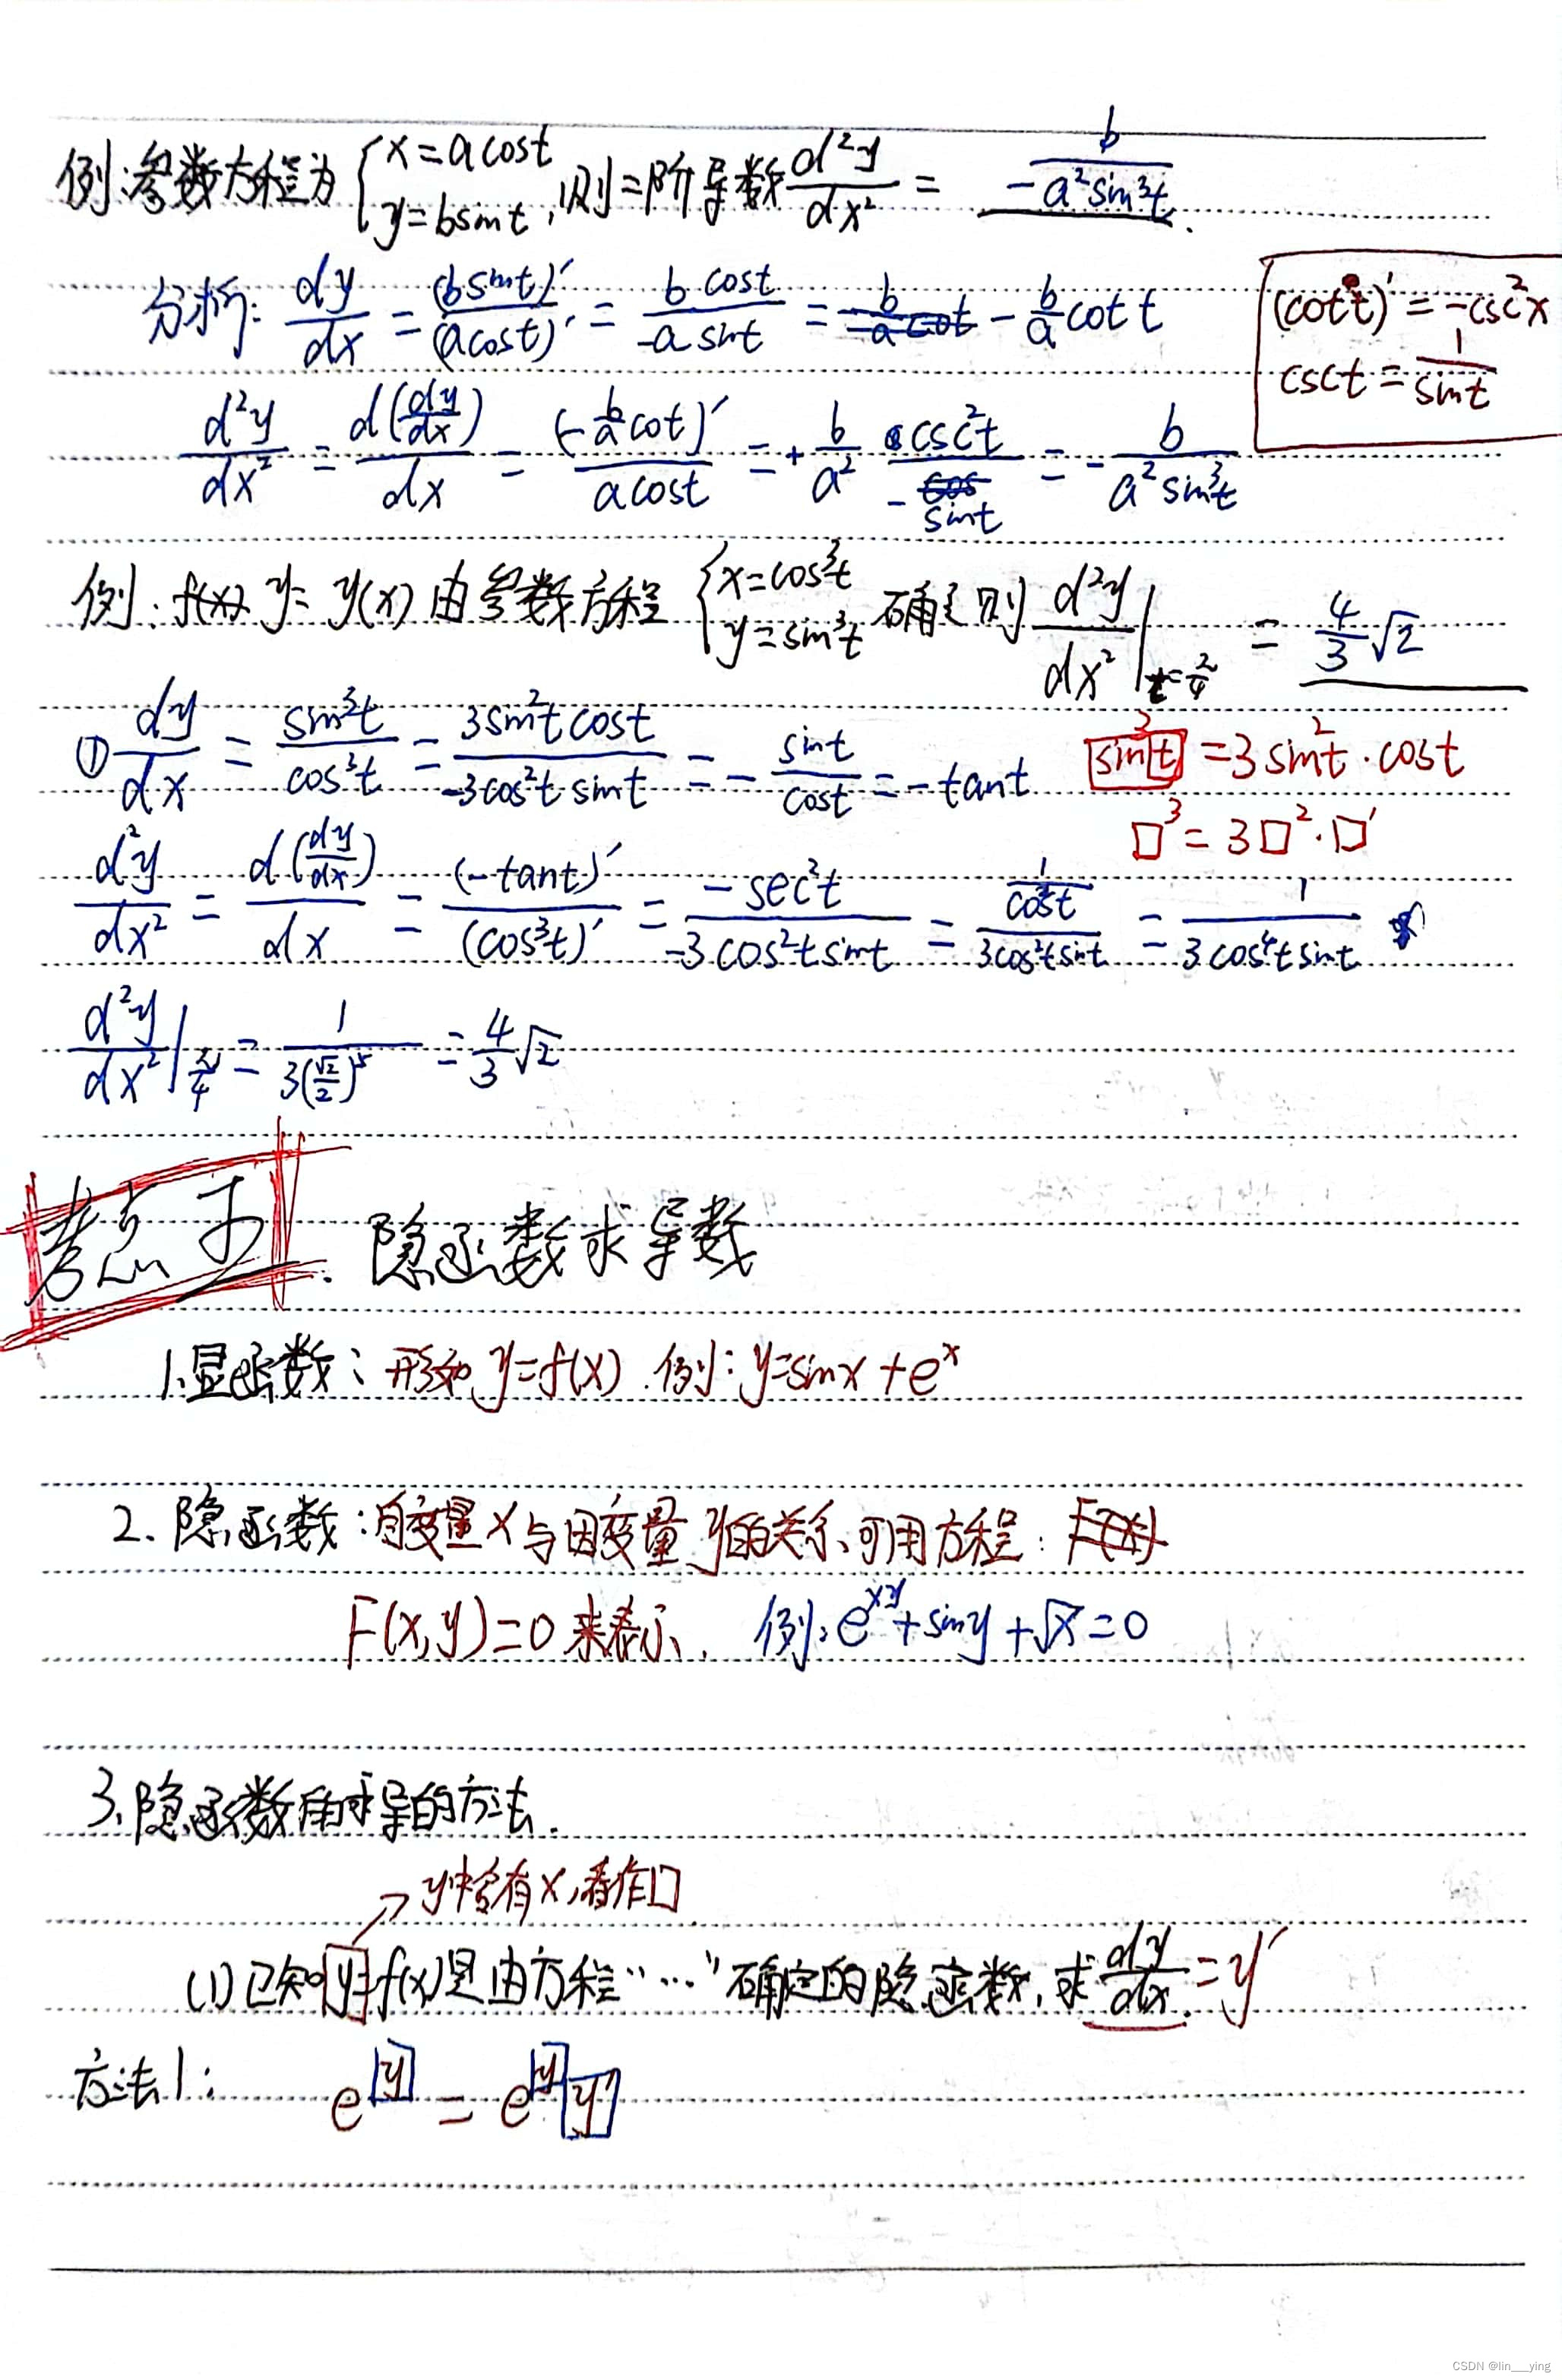 例:参数方程为 { x=acost y=bsint ,则二阶导数 d²y/dx² = b/(-a²sin³t) .
分析: dy/dx = (bsint)′/(acost)′ = b cost/(-a sint) = - b/a cot t
(cot t)′ = -csc²x
csct = 1/sint
d²y/dx² = d(dy/dx)/dx = (-b/a cot)′/(acost) = + b/a² csc²t/(-sint) = - b/(a² sin³t)
例: y= y(x) 由参数方程 { x=cos³t y=sin³t 确定 则 d²y/dx² |t=π/4 = 4/3 √2
① dy/dx = sin³t/cos³t = 3sin²t cost/(-3cos²t sint) = - sint/cost = -tant
sin³t = 3 sin²t · cost
□³ = 3□² · □′
d²y/dx² = d(dy/dx)/dx = (-tant)′/(cos³t)′ = -sec²t/(-3cos²t sint) = (1/cos²t)/(3cos²t sint) = 1/(3cos⁴t sint)
d²y/dx² |π/4 = 1/(3(√2/2)⁵) = 4/3 √2
考点 五. 隐函数求导数
1.显函数: 形如 y=f(x) 例: y=sinx+eˣ
2. 隐函数:自变量x与因变量y的关系可用方程:
F(x,y)=0 来表示. 例: e^xy+siny+√x=0
3.隐函数求导的方法.
→ y中含有x,看作□
(1)已知y=f(x)是由方程“…”确定的隐函数,求 dy/dx = y′
方法1: e^y = e^y y′
CSDN @lin___ying